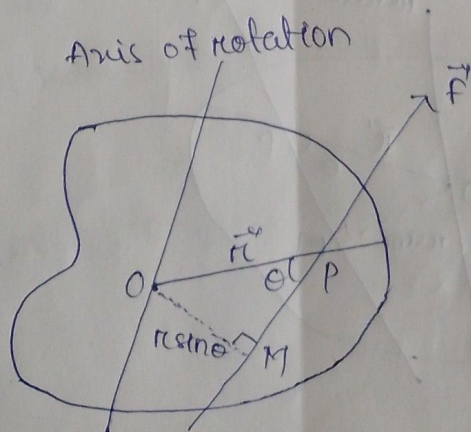 Axis of rotation
F⃗
r⃗
O
θ
P
rsinθ
M